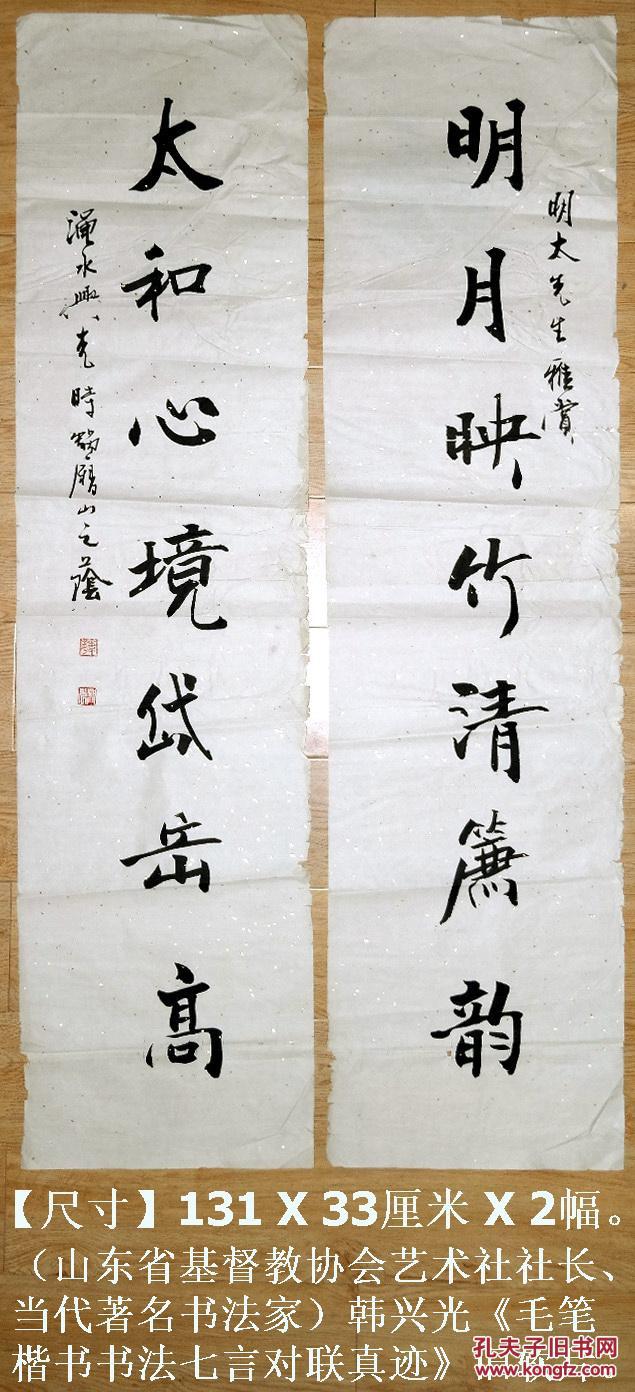 明月映竹清簾韵
明太先生雅赏
太和心境岱岳高
水興光時
山之蔭
【尺寸】131 X 33厘米 X 2幅。
（山东省基督教协会艺术社社长、
当代著名书法家）韩兴光《毛笔
楷书书法七言对联真迹》
孔夫子旧书网
www.kongfz.com